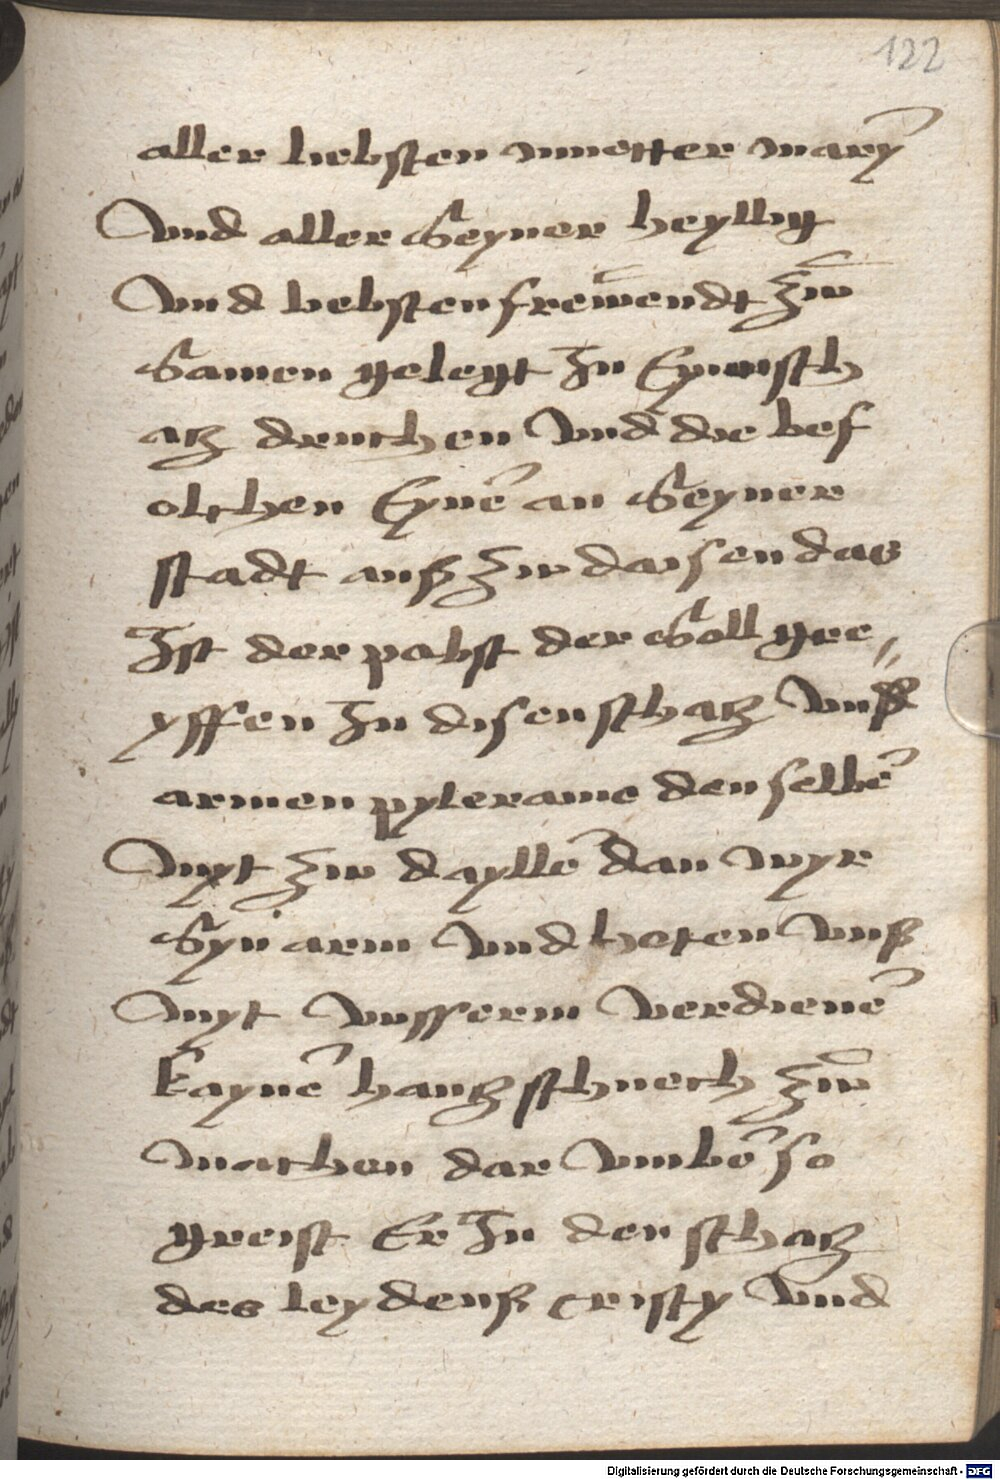 122
aller liebsten muetter mary
Vnd aller Seyner heyllig
Vnd liebsten frewendt zw
Samen gelegt In Eynen sch
atz druchen Vnd die bef
olchen Eynē an Seyner
stadt auß zw daisen das
Ist der pabst der Soll gre„
yffen In disen schatz Vnß
armen pylerame den selbē
Myt zw dayllē dan wyr
Syn arm Vnd heten Vnß
Myt Vnsserm Verdienē
kaynē hantzschuech zw
machen dar Vmbē so
greist Er In den schatz
des leydenß cristy Vnd
Digitalisierung gefördert durch die Deutsche Forschungsgemeinschaft - DFG